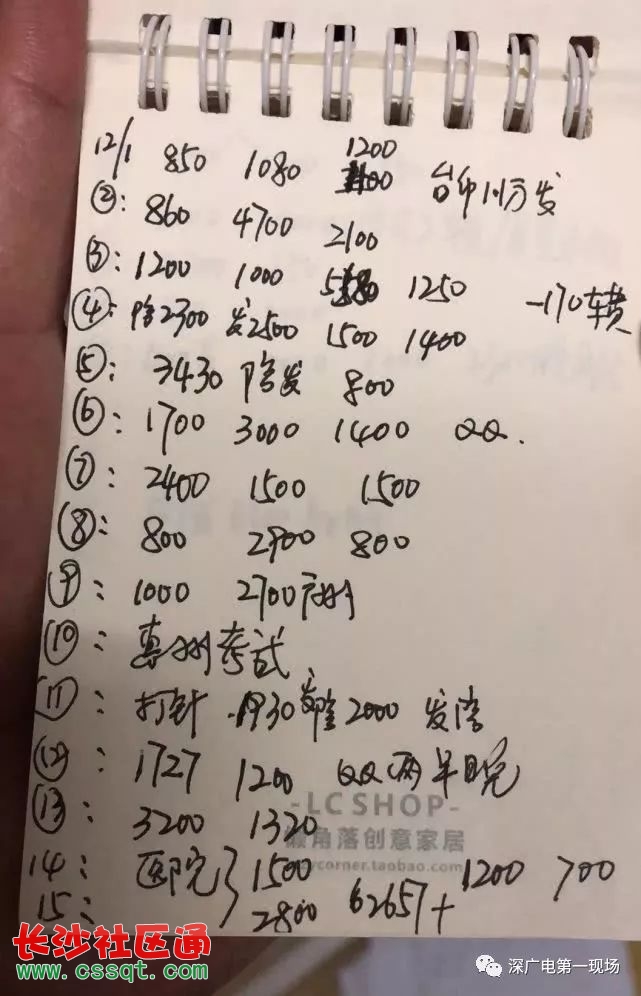 12/1 850 1080 1200
②: 860 4700 2100
③: 1200 1000 1250 -170转
④: 陪2300 发2500 1500 1400
⑤: 3430 陪发 800
⑥: 1700 3000 1400 QQ.
⑦: 2400 1500 1500
⑧: 800 2900 800
⑨: 1000 2700
⑩: 惠州考试
⑪: 打针 1930 2000 发
⑫: 1727 1200 QQ两半
⑬: 3200 1320
-LC SHOP-
懒角落创意家居
ycorner.taobao.com
14: 医院 1500 1200 700
15: 2800 62657+
长沙社区通
www.cssqt.com
深广电第一现场